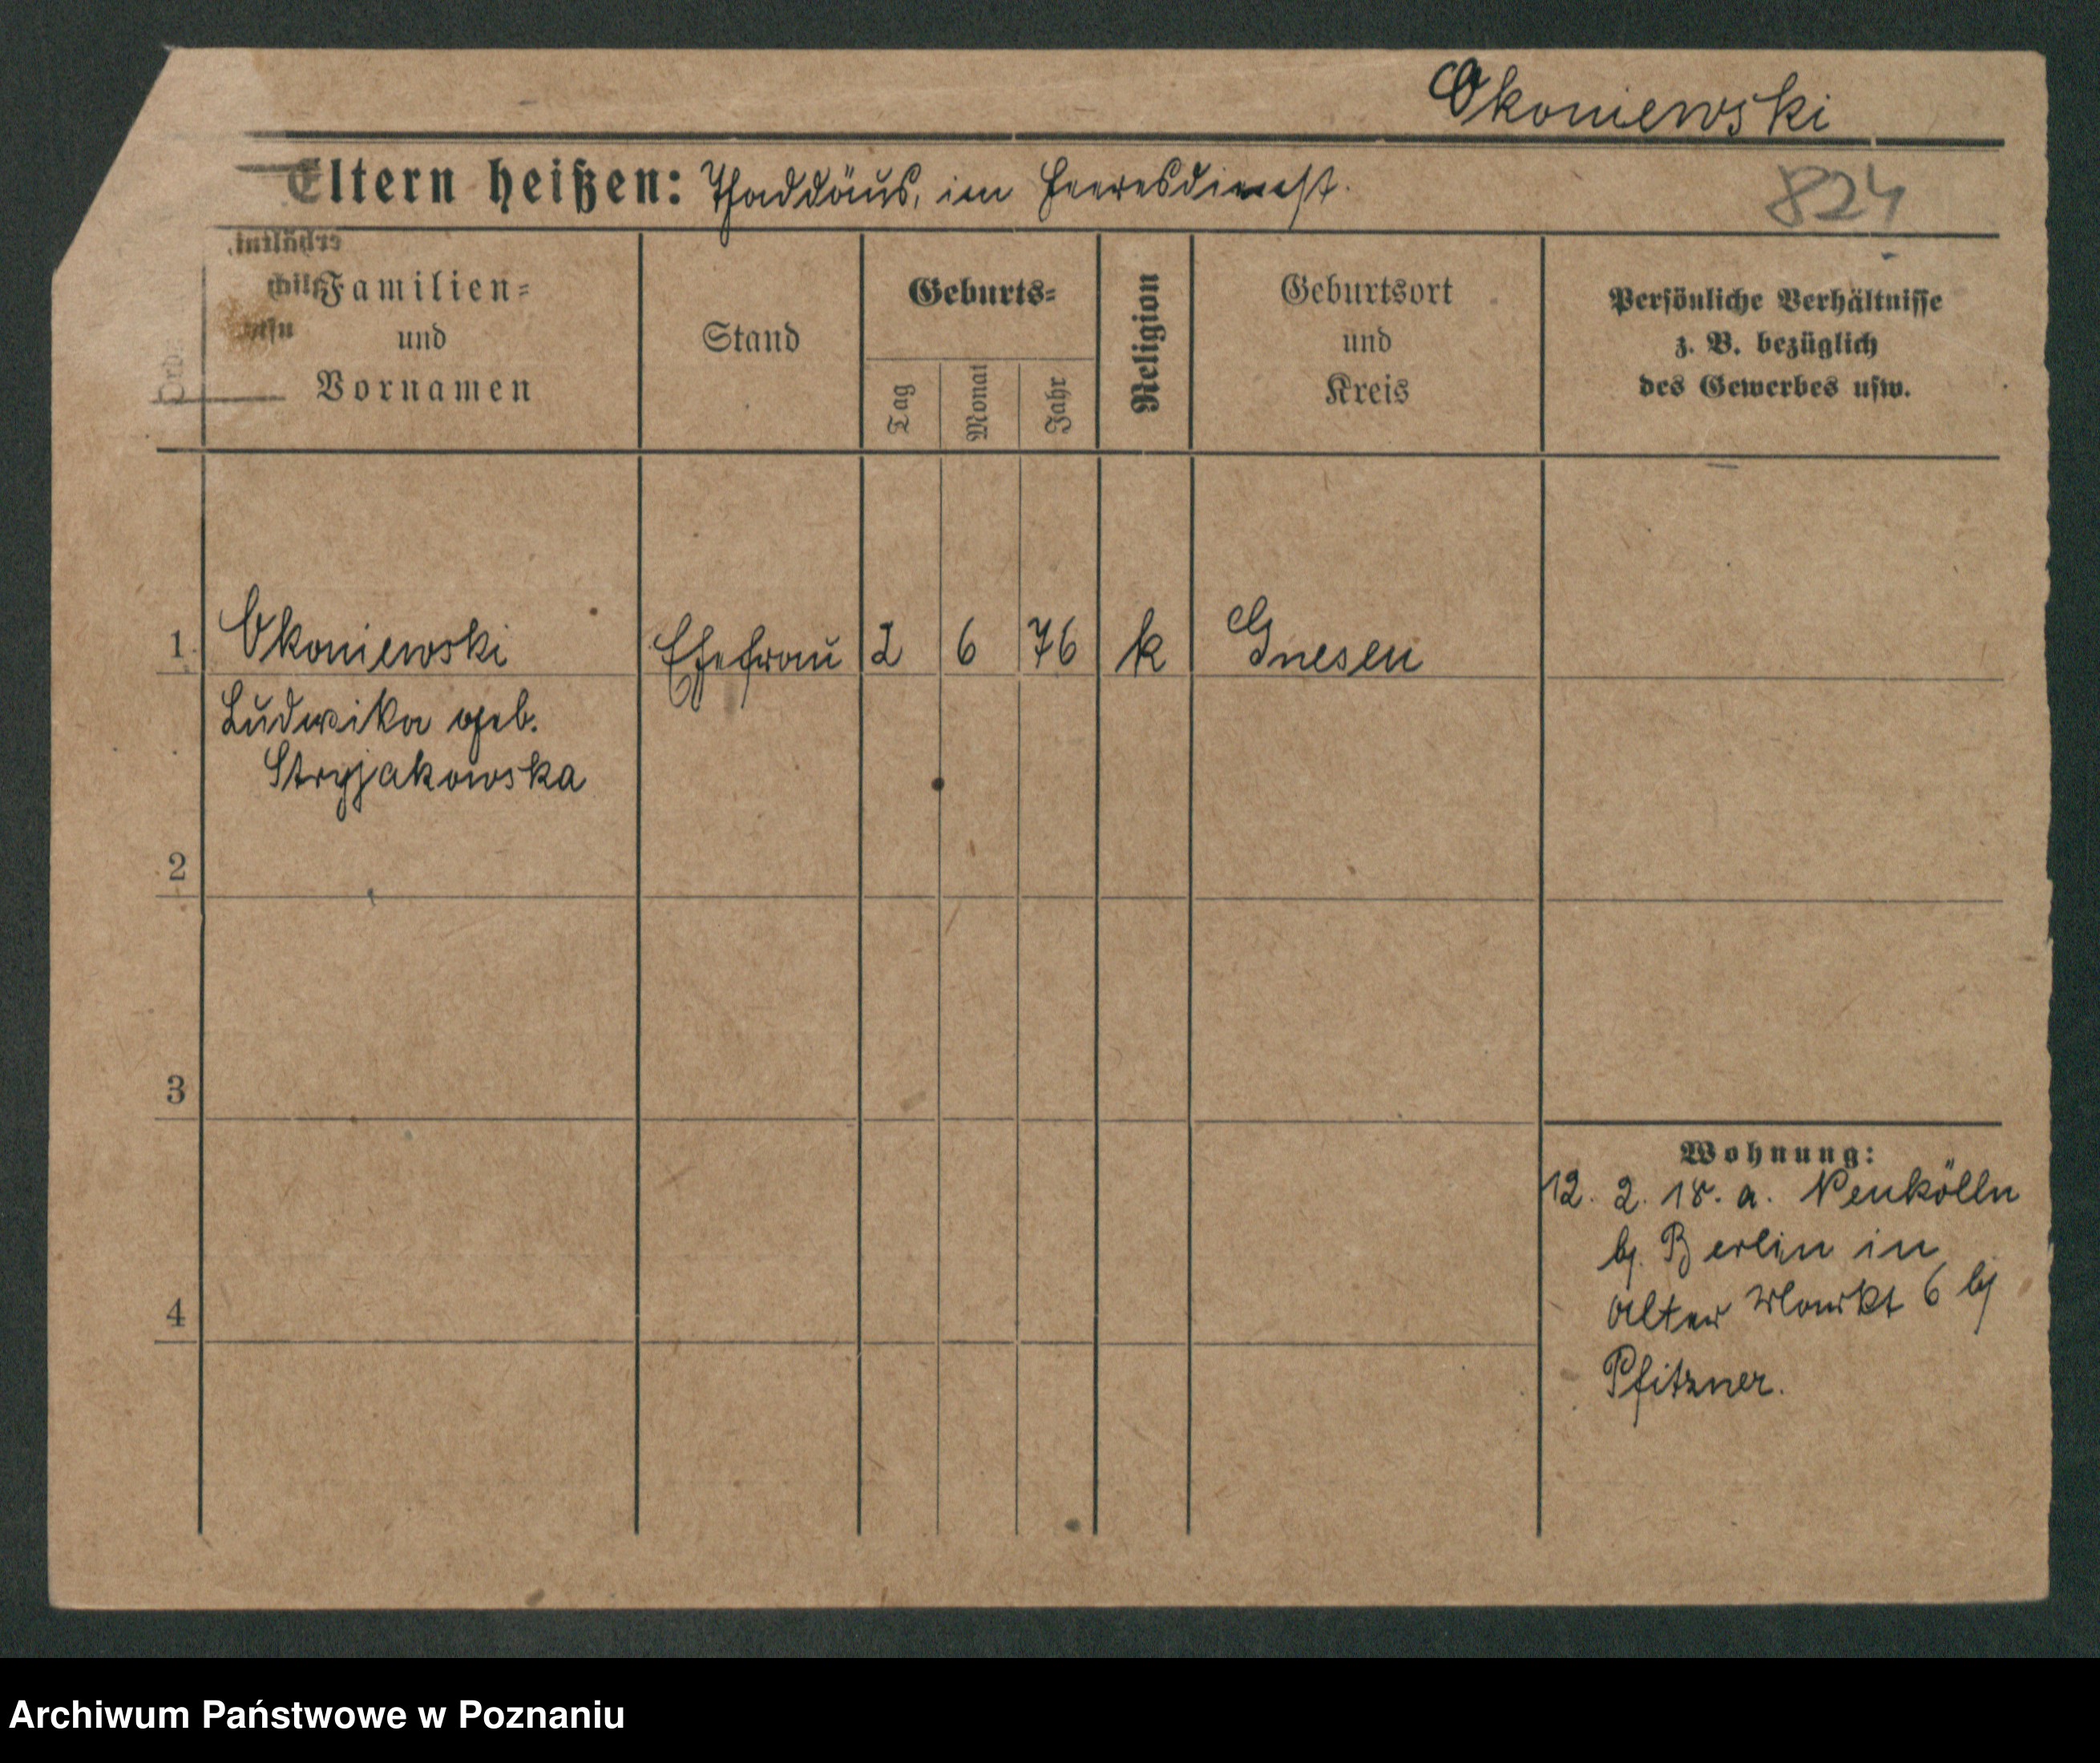 Okoniewski
Eltern heißen: Thaddäus, im Heeresdienst.
824
Familien-
und
Vornamen
Stand
Geburts-
Tag
Monat
Jahr
Religion
Geburtsort
und
Kreis
Persönliche Verhältnisse
z. B. bezüglich
des Gewerbes usw.
1. Okoniewski Ehefrau 2 6 76 k Gnesen
Ludwika geb.
Stryjakowska
2
3
4
Wohnung:
12. 2. 18. a. Neukölln
b. Berlin in
Alter Markt 6 b
Pfitzner.
Archiwum Państwowe w Poznaniu